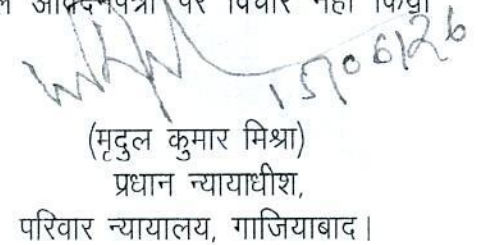 आवेदनपत्रों पर विचार नहीं किया
15/06/26
(मृदुल कुमार मिश्रा)
प्रधान न्यायाधीश,
परिवार न्यायालय, गाजियाबाद।